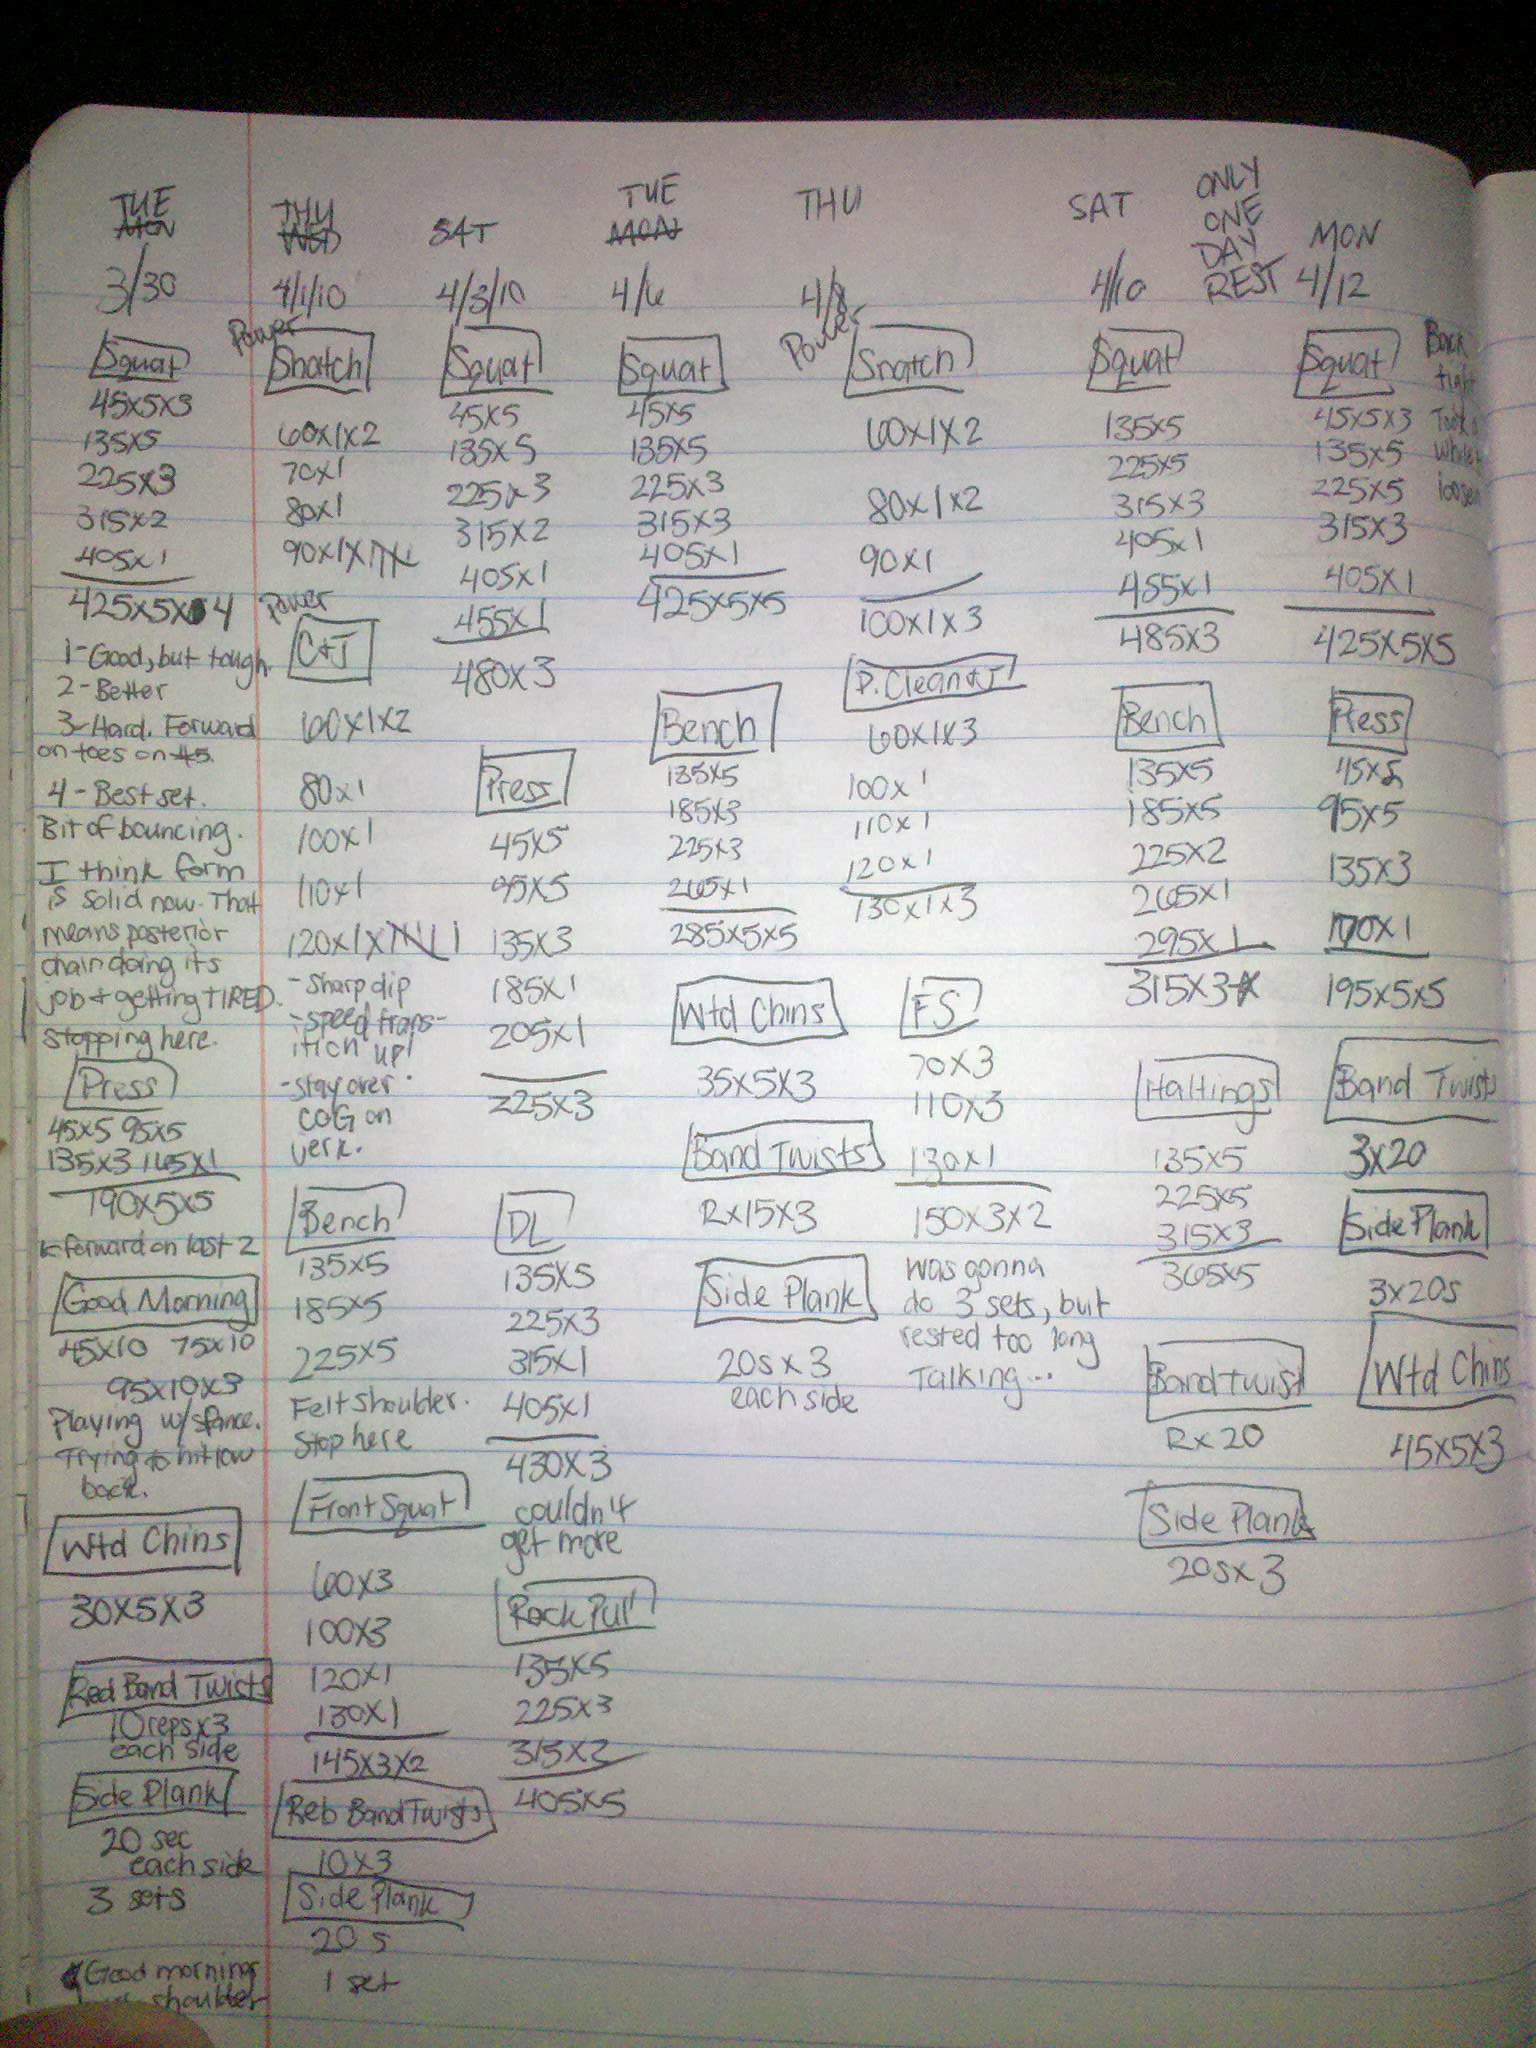 TUE
MON
3/30
Squat
45x5x3
135x5
225x3
315x2
405x1
425x5x 4
1-Good, but tough.
2-Better
3-Hard. Forward
on toes on #5.
4-Best set.
Bit of bouncing.
I think form
is solid now. That
means posterior
chain doing its
job + getting TIRED.
stopping here.
Press
45x5 95x5
135x3 165x1
190x5x5
forward on last 2
Good Morning
45x10 75x10
95x10x3
Playing w/stance.
Trying to hit low
back.
Wtd Chins
30x5x3
Red Band Twists
10 reps x3
each side
Side Plank
20 sec
each side
3 sets
Good morning
shoulder
THU
WED
4/1/10
Power
Snatch
60x1x2
70x1
80x1
90x1x
Power
C+J
60x1x2
80x1
100x1
110x1
120x1x
-sharp dip
-speed trans-
ition up!
-stay over
COG on
jerk.
Bench
135x5
185x5
225x5
Felt shoulder.
Stop here
Front Squat
60x3
100x3
120x1
130x1
145x3x2
Reb Band Twists
10x3
Side Plank
20 s
1 set
SAT
4/3/10
Squat
45x5
135x5
225x3
315x2
405x1
455x1
480x3
Press
45x5
95x5
135x3
185x1
205x1
225x3
DL
135x5
225x3
315x1
405x1
430x3
couldn't
get more
Rack Pull
135x5
225x3
315x2
405x5
TUE
MON
4/6
Squat
45x5
135x5
225x3
315x3
405x1
425x5x5
Bench
135x5
185x3
225x3
265x1
285x5x5
Wtd Chins
35x5x3
Band Twists
Rx15x3
Side Plank
20s x 3
each side
THU
4/8
Power
Snatch
60x1x2
80x1x2
90x1
100x1x3
P. Clean+J
60x1x3
100x1
110x1
120x1
130x1x3
FS
70x3
110x3
130x1
150x3x2
Was gonna
do 3 sets, but
rested too long
Talking...
SAT
4/10
Squat
135x5
225x5
315x3
405x1
455x1
485x3
Bench
135x5
185x5
225x2
265x1
295x1
315x3
Haltings
135x5
225x5
315x3
365x5
Band twist
Rx20
Side Plank
20sx3
ONLY
ONE
DAY
REST
MON
4/12
Squat
45x5x3
135x5
225x5
315x3
405x1
425x5x5
Back
tight
Took a
while
loosen
Press
45x5
95x5
135x3
170x1
195x5x5
Band Twists
3x20
Side Plank
3x20s
Wtd Chins
45x5x3